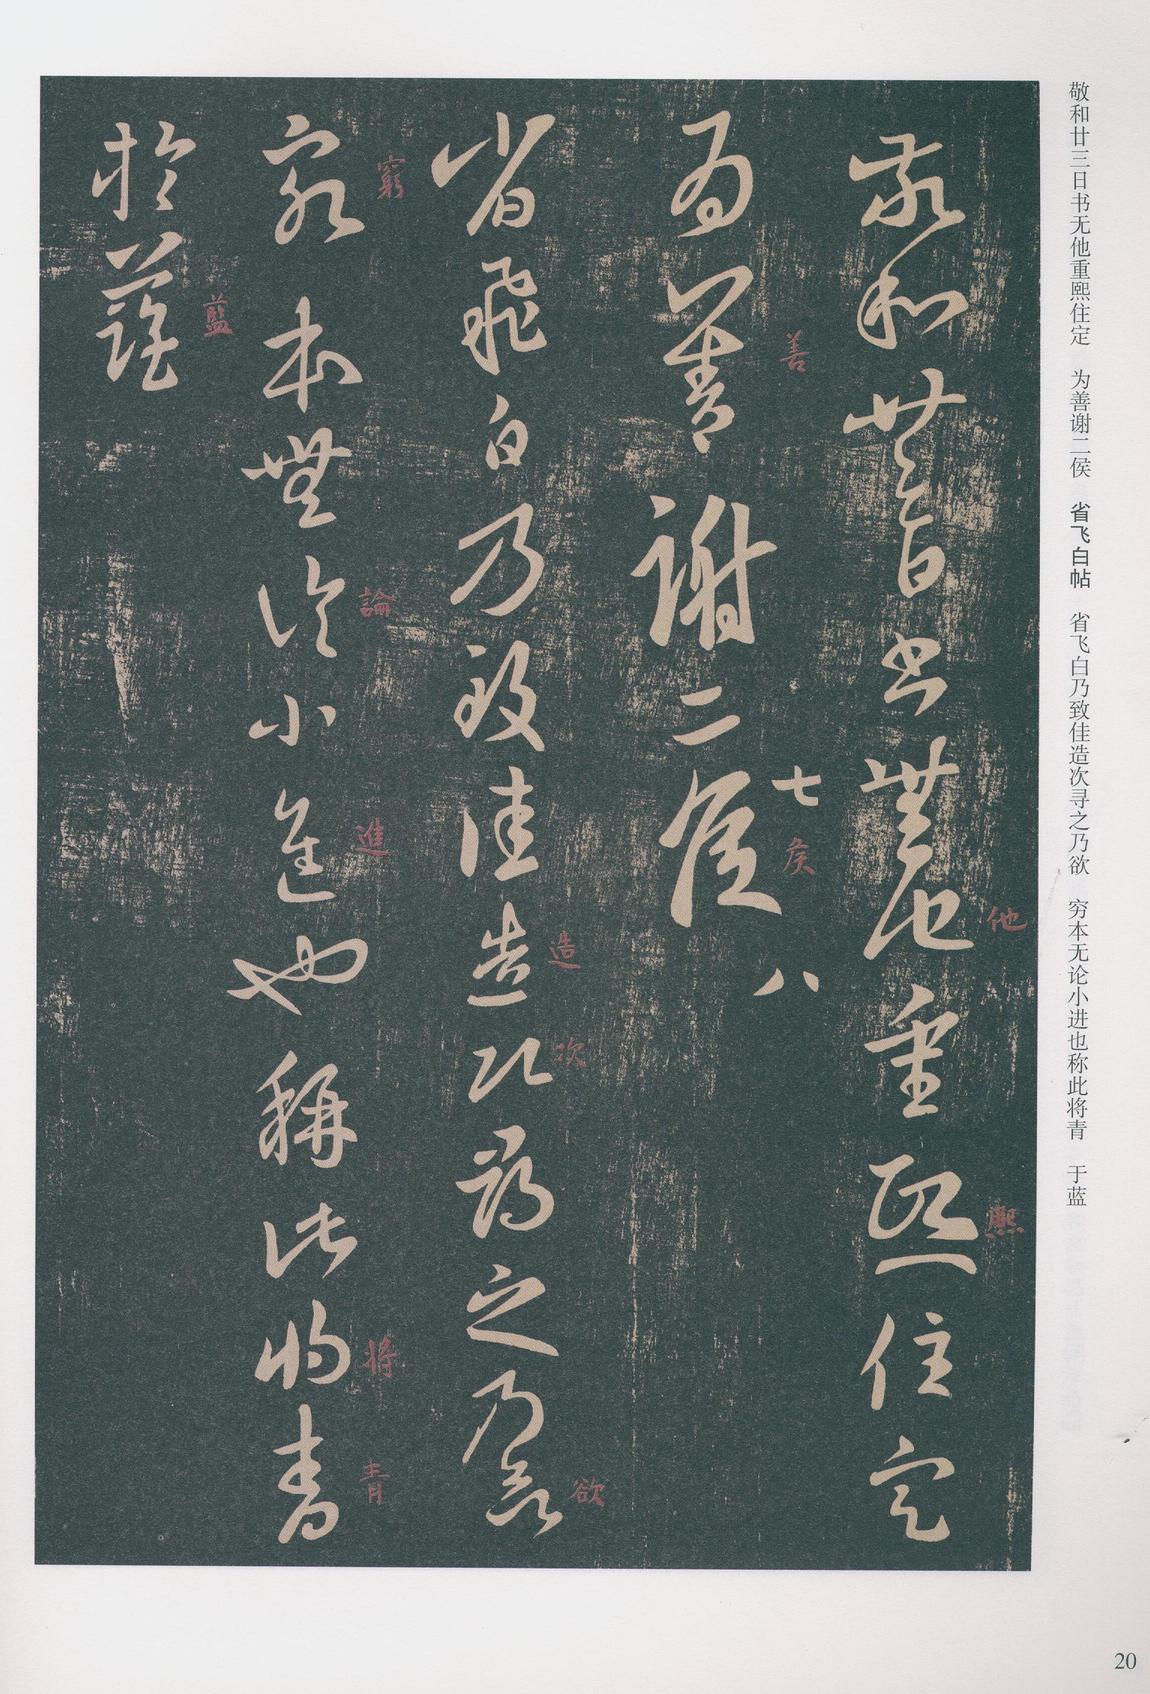 敬和廿三日书无他重熙住定　为善谢二侯　省飞白帖　省飞白乃致佳造次寻之乃欲　穷本无论小进也称此将青　于蓝
敬和廿三日書無他重熙住定
他
熙
為善謝二侯
善
七
侯
八
省飛白乃致佳造次尋之乃欲
造
次
欲
窮本無論小進也稱此將青
窮
論
進
將
青
於藍
藍
20